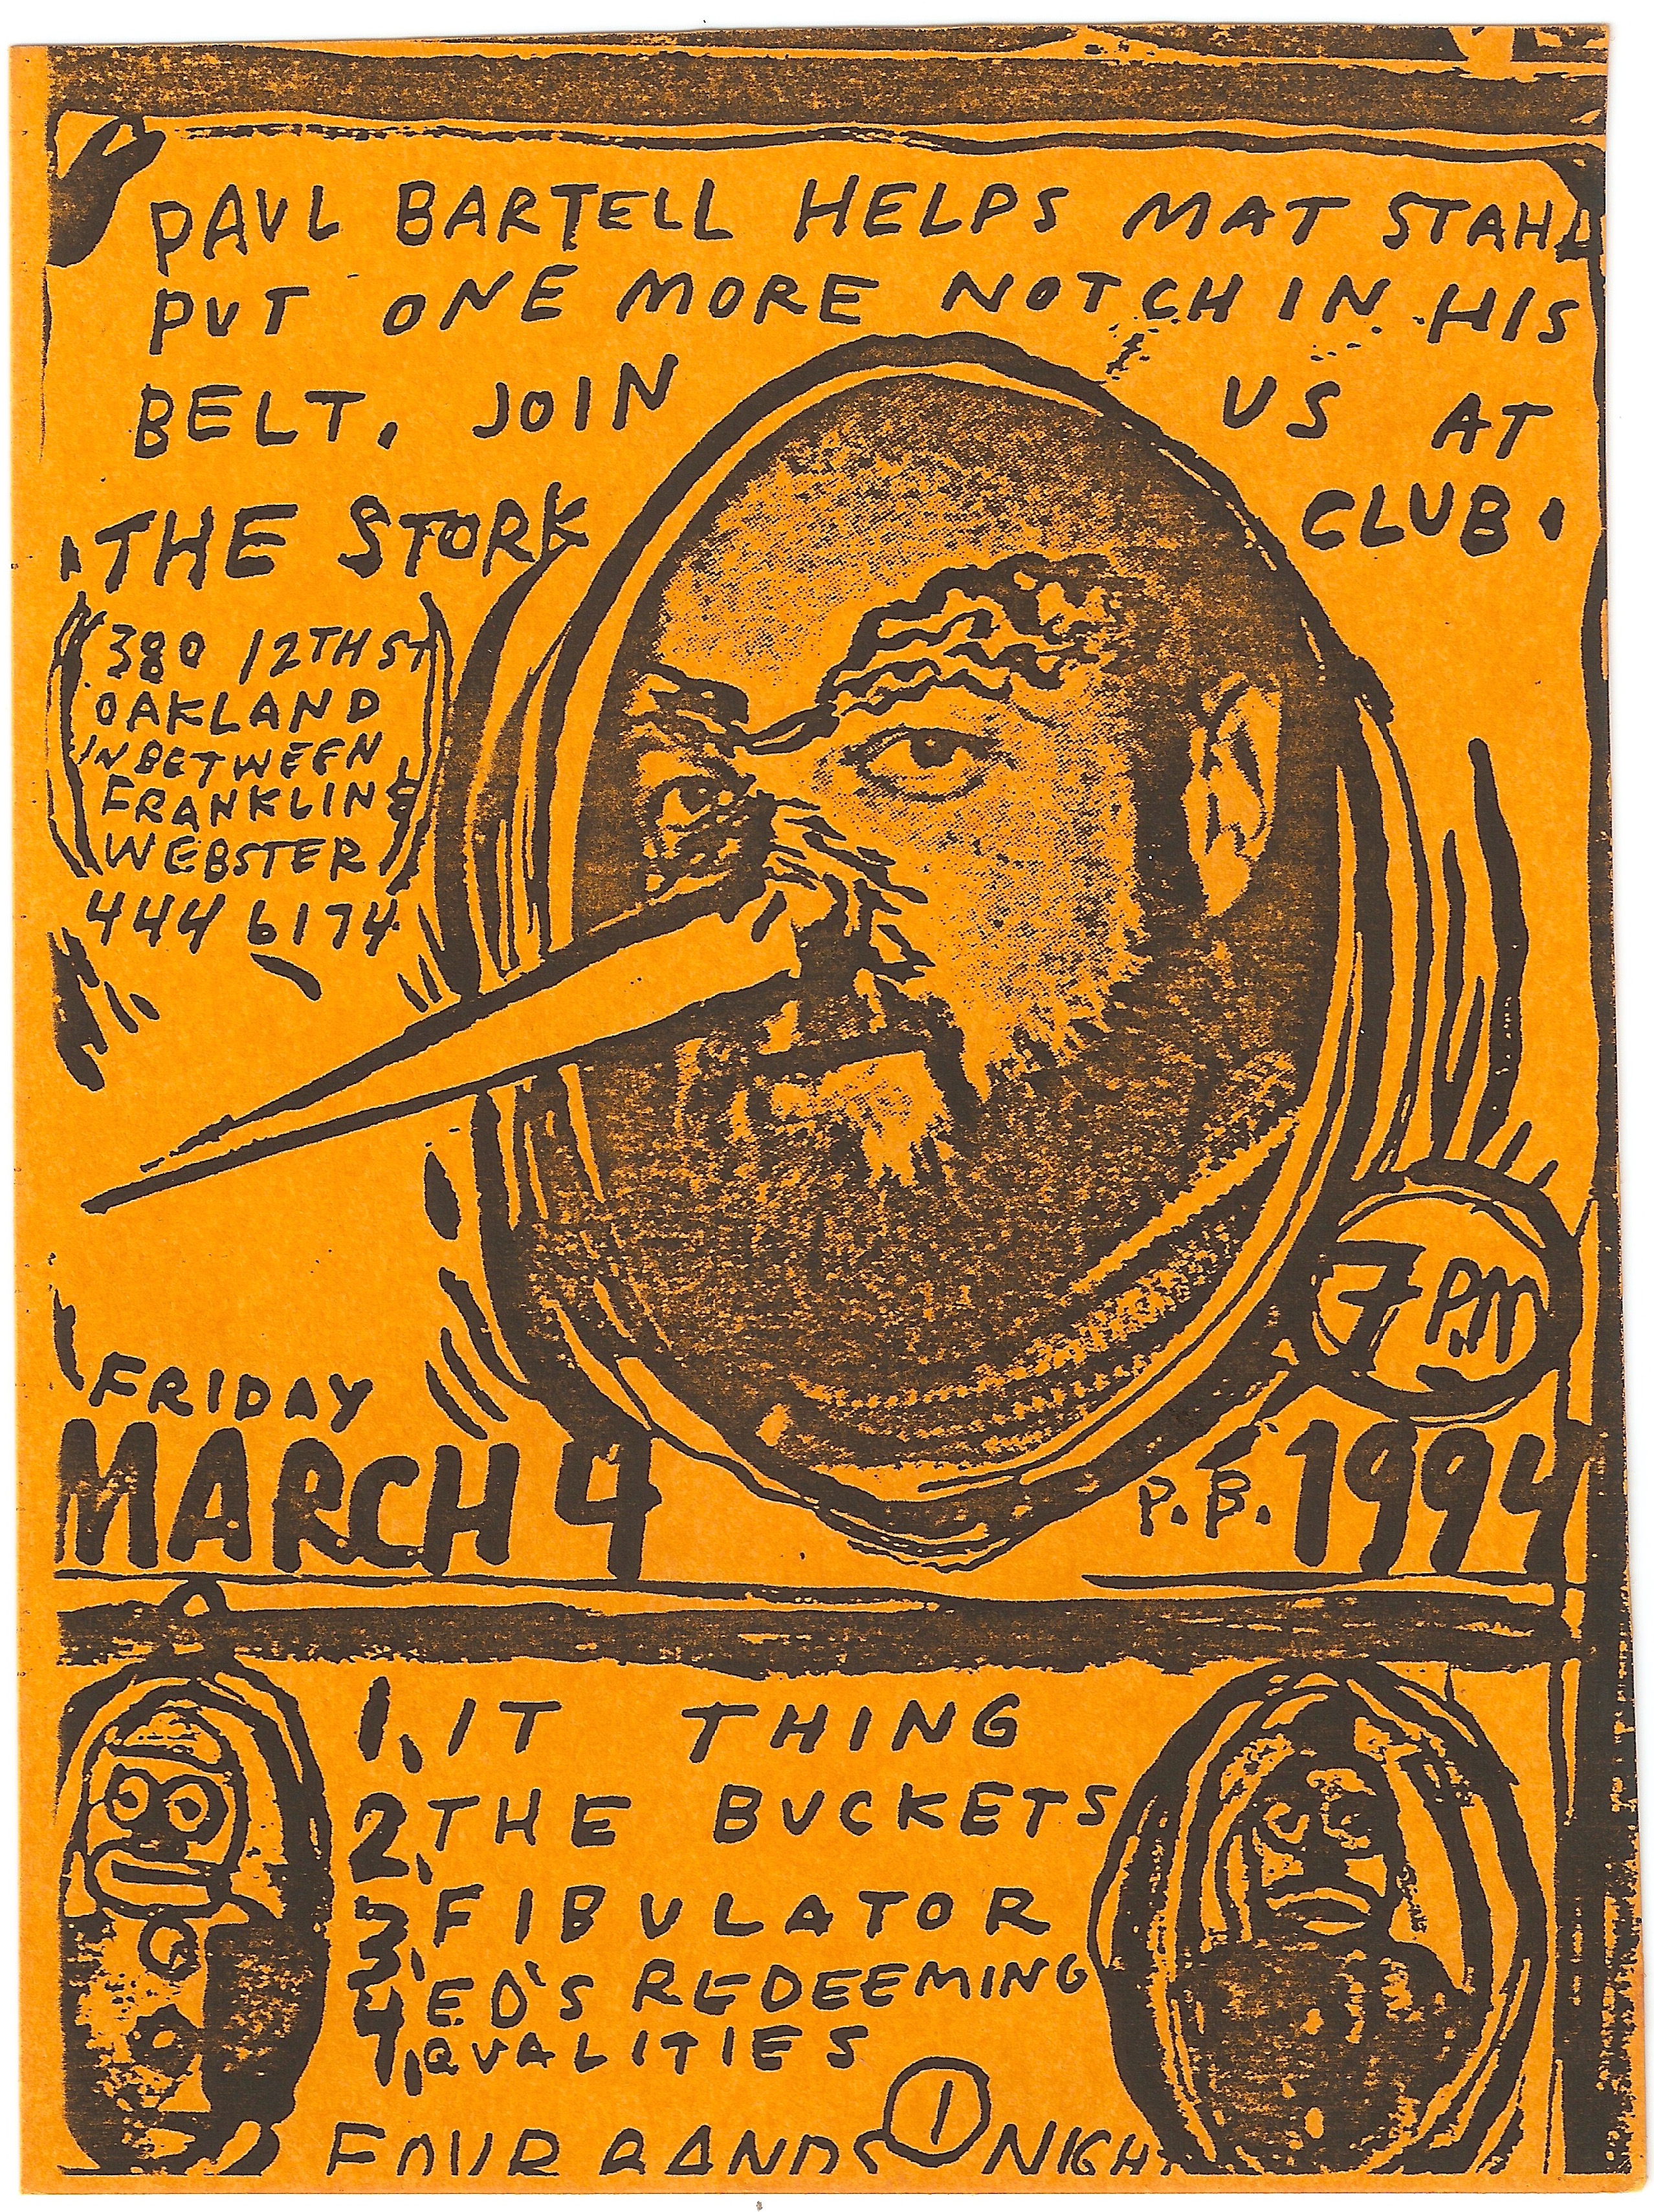 PAUL BARTELL HELPS MAT STAHL
PUT ONE MORE NOTCH IN HIS
BELT, JOIN US AT
THE STORK CLUB.
(380 12TH ST
OAKLAND
IN BETWEEN
FRANKLIN &
WEBSTER)
444 6174
7 PM
FRIDAY
MARCH 4 P.B. 1994
1. IT THING
2. THE BUCKETS
3. FIBULATOR
4. ED'S REDEEMING
QUALITIES
FOUR BANDS 1 NIGHT